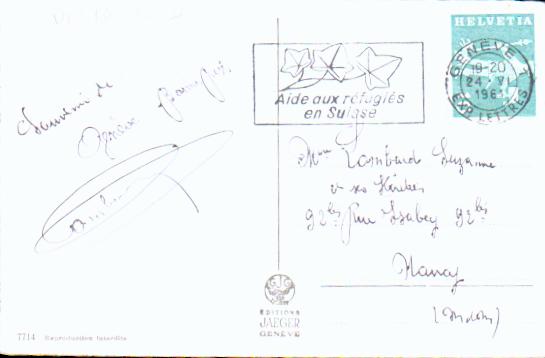 HELVETIA
GENÈVE 1
19-20
24.VI
1961
EXP. LETTRES
Aide aux réfugiés
en Suisse
Souvenir de
Genève
Mme Lombard Suzanne
92bis Rue Isabey 92bis
Nancy
EDITIONS
JAEGER
GENÈVE
7714 Reproduction interdite